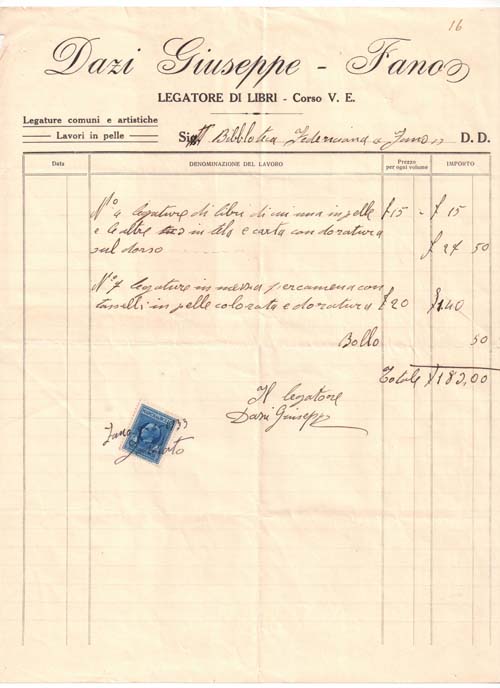 16
Dazi Giuseppe - Fano
LEGATORE DI LIBRI - Corso V. E.
Legature comuni e artistiche
Lavori in pelle
Sig. Biblioteca Federiciana Fano D. D.
Data DENOMINAZIONE DEL LAVORO Prezzo per ogni volume IMPORTO
N° 4 legature di libri di cui una in pelle £ 15 - £ 15
e le altre in tela e carta con doratura
sul dorso £ 27 50
N° 7 legature in mezza pergamena con
tasselli in pelle colorata e doratura £ 20 £ 140
Bollo 50
Totale £ 183,00
Il legatore
Dazi Giuseppe
Fano 33